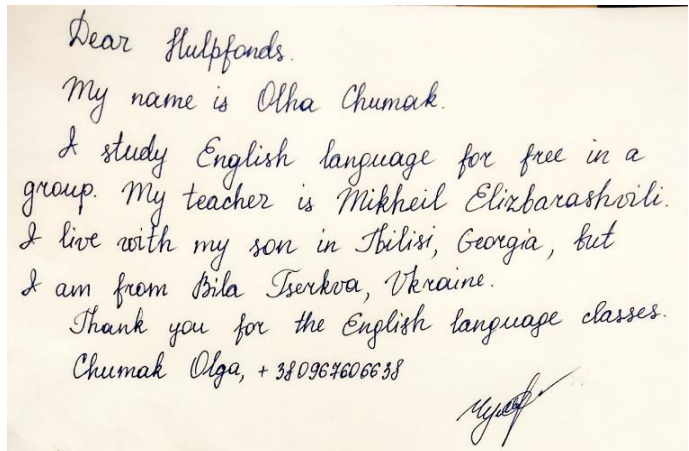 Dear Hulpfonds.
My name is Olha Chumak.
I study English language for free in a
group. My teacher is Mikheil Elizbarashvili.
I live with my son in Tbilisi, Georgia, but
I am from Bila Tserkva, Ukraine.
Thank you for the English language classes.
Chumak Olga, +380967606638